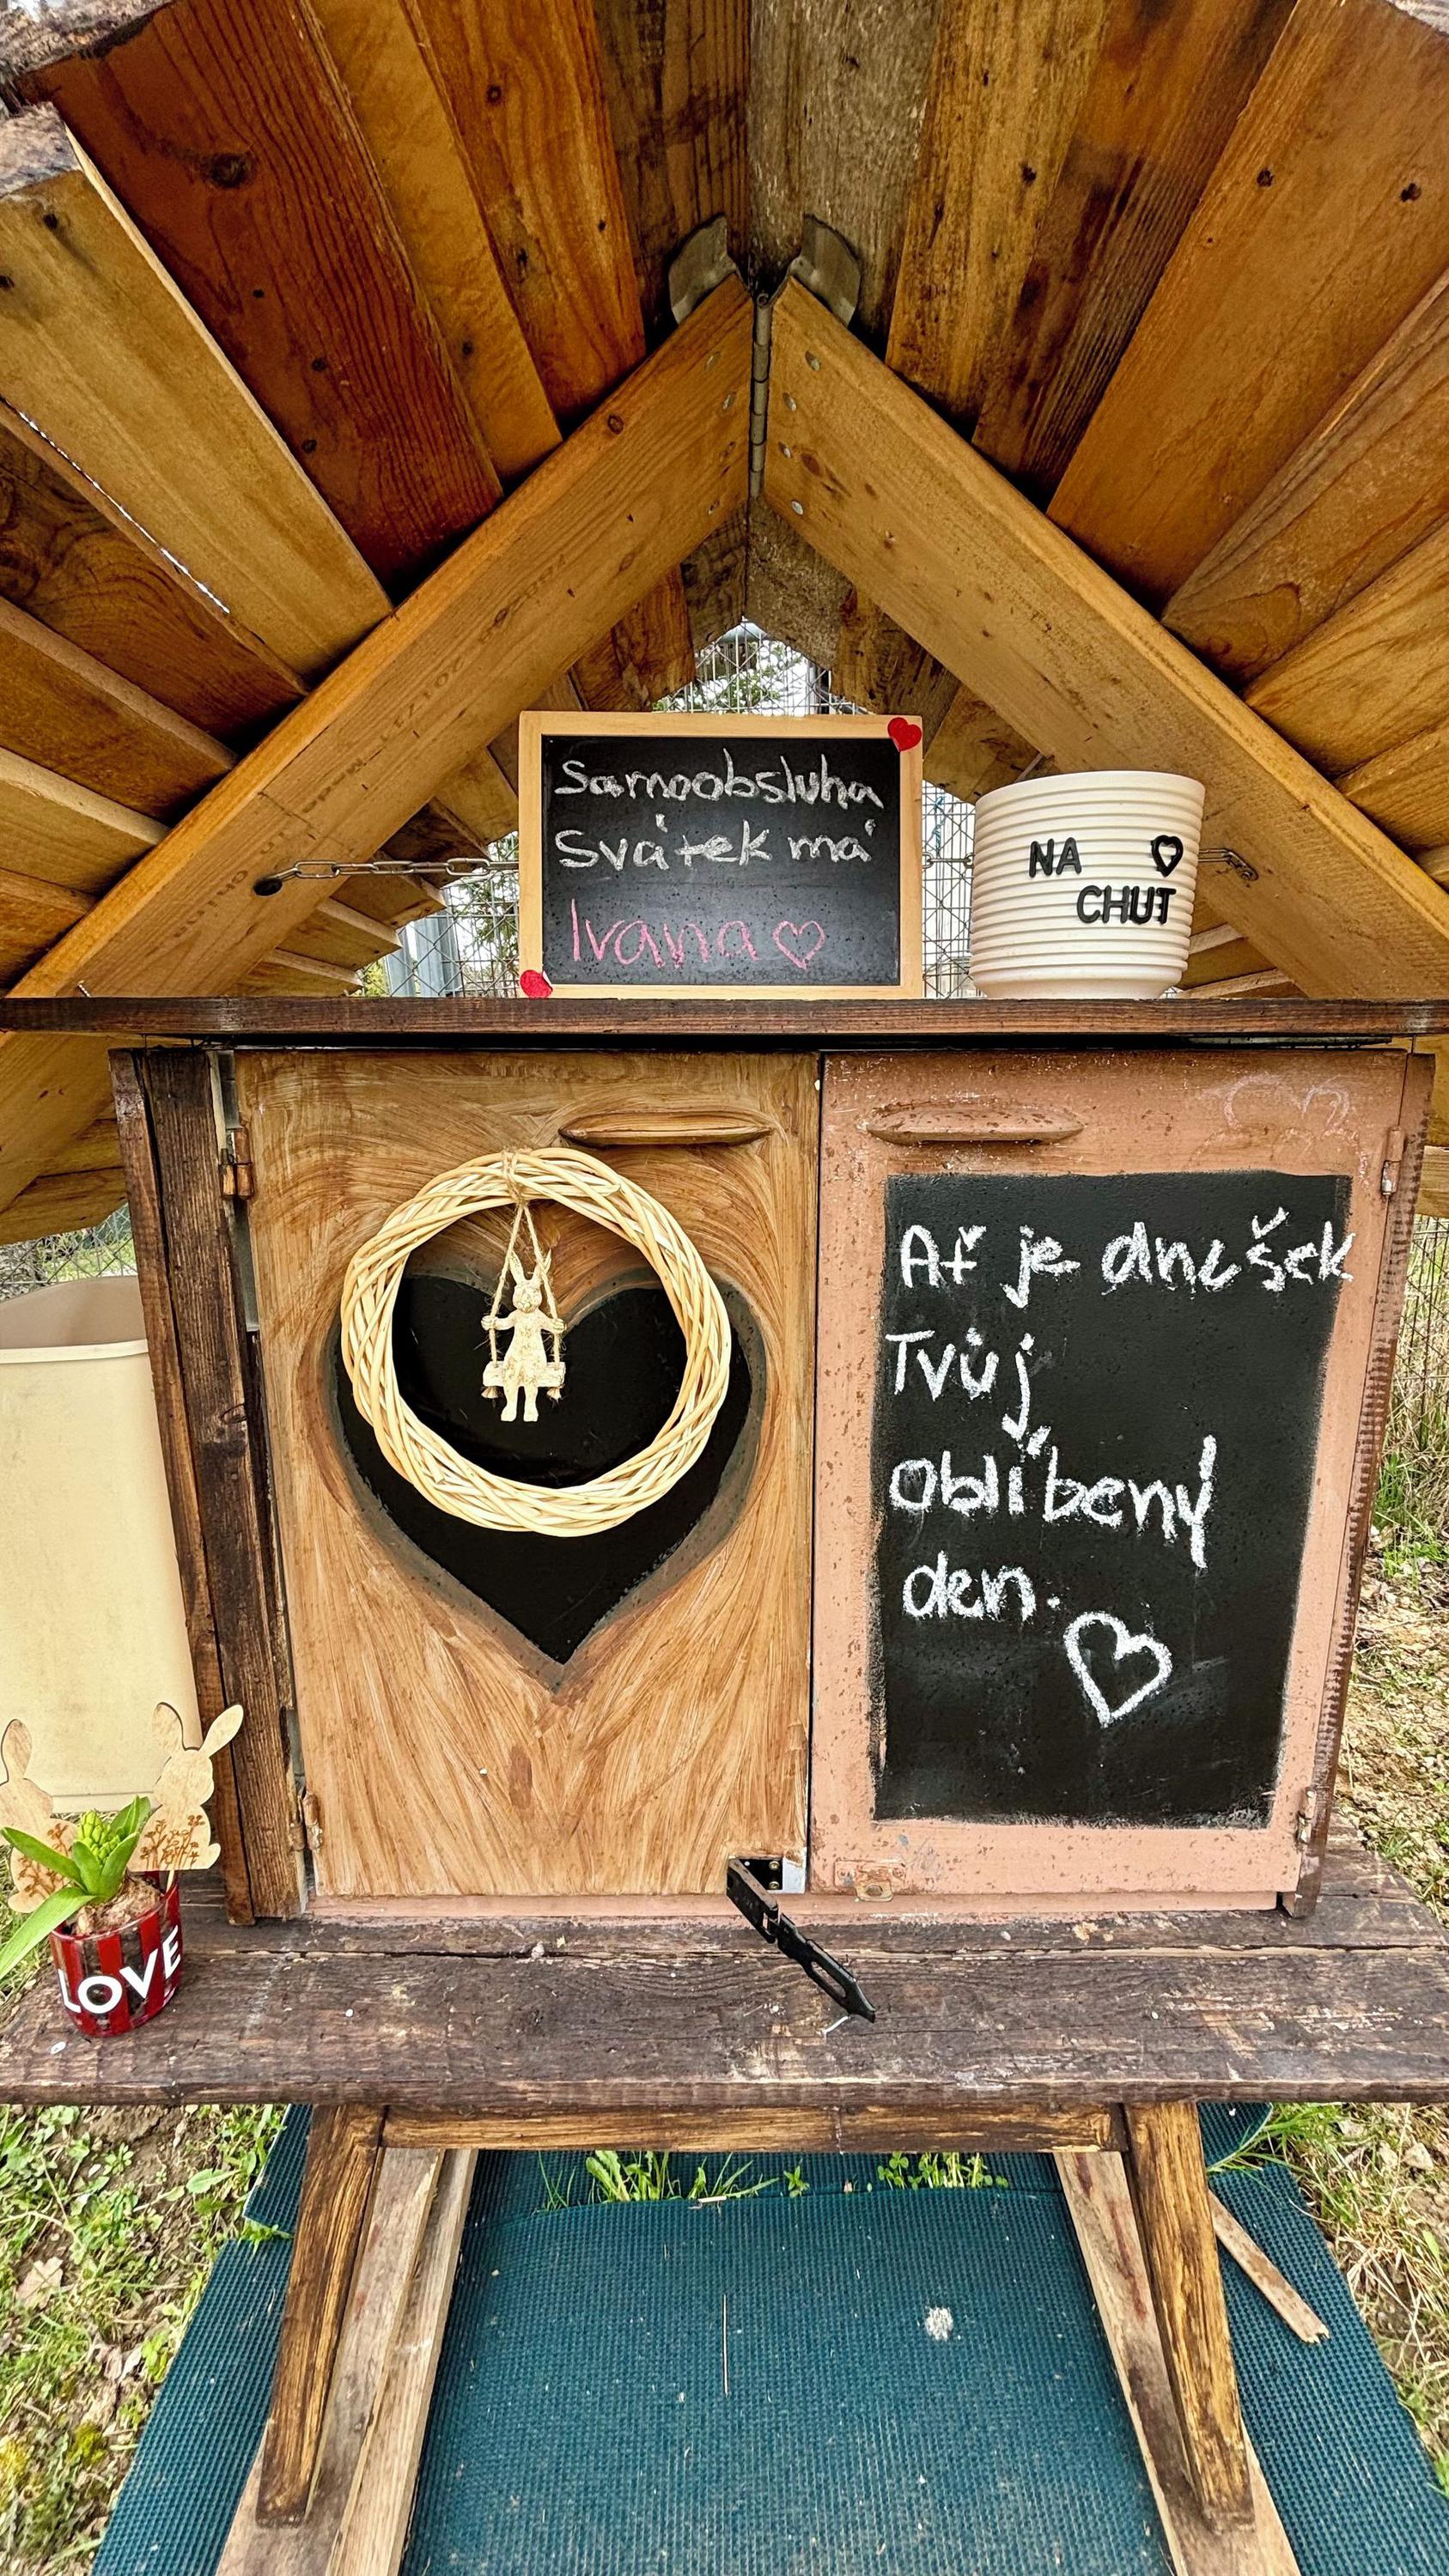 Samoobsluha
Svátek má
Ivana ♡
NA ♡
CHUT
Ať je dnešek
Tvůj
oblíbený
den.
♡
LOVE